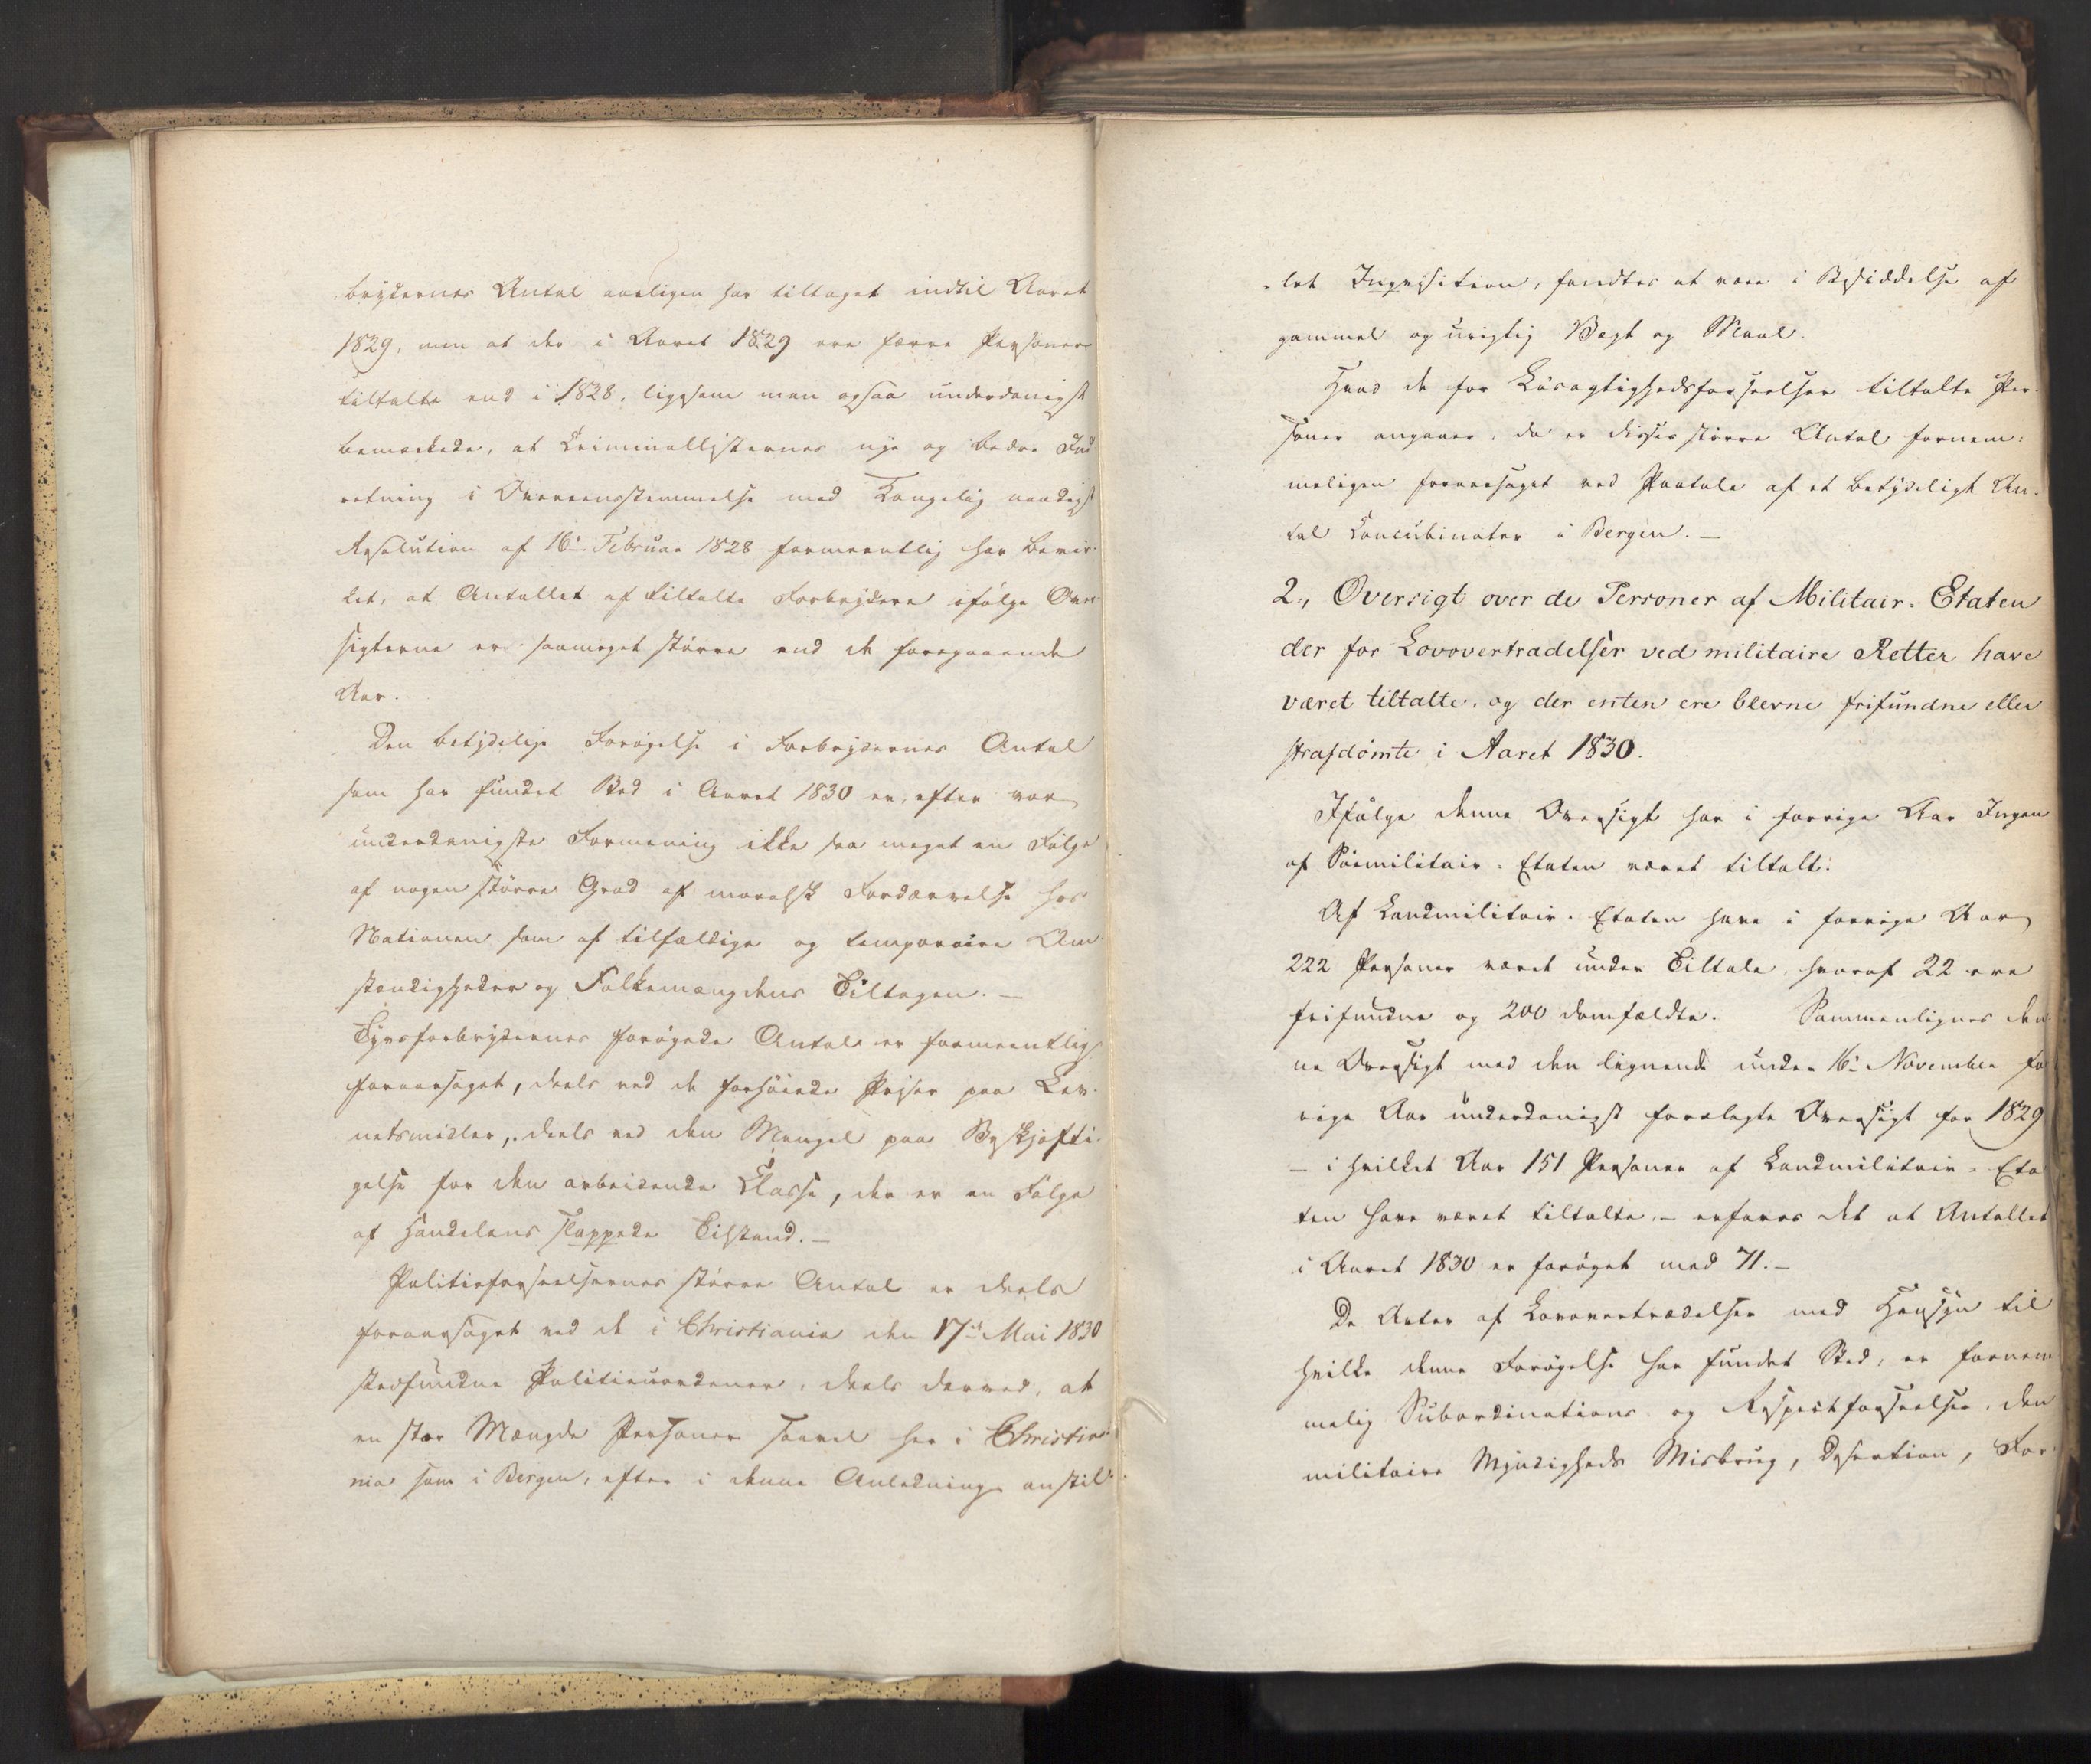 brydernes Antal aarligen har tiltaget indtil Aaret
1829, men at der i Aaret 1829 ere færre Personer
tiltalte end i 1828, ligesom man ogsaa underdanigst
bemærkede, at Criminallisternes nye og bedre Ind
retning i Overeensstemmelse med Kongelig naadigst
Resolution af 16de Februar 1828 formeentlig har bevir-
ket, at Antallet af tiltalte Forbrydere ifølge Over
sigterne er saameget større end de foregaaende
Aar.
Den betydelige Forøgelse i Forbrydernes Antal
som har fundet Sted i Aaret 1830 er, efter vor
underdanigste Formening ikke saa meget en Følge
af nogen større Grad af moralsk Fordærvelse hos
Nationen som af tilfældige og temporaire Om
stændigheder og Folkemængdens Tiltagen. —
Tyvsforbrydernes forøgede Antal er formeentlig
foraarsaget, deels ved de forhøiede Priser paa Lev-
netsmidler, deels ved den Mangel paa Beskjæfti-
gelse for den arbeidende Classe, der er en Følge
af Handelens slappede Tilstand. —
Politieforseelsernes større Antal er deels
foraarsaget ved de i Christiania den 17de Mai 1830
stedfundne Politieuordener, deels derved, at
en stor Mængde Personer saavel her i Christia-
nia som i Bergen, efter i denne Anledning anstil-
-let Inqvisition, fandtes at være i Besiddelse af
gammel og urigtig Vægt og Maal.
Hvad de for Løsagtighedsforseelser tiltalte Per-
soner angaaer, da er disses større Antal fornem-
meligen foraarsaget ved Paatale af et betydeligt An-
tal Concubinater i Bergen. —
2., Oversigt over de Personer af Militair-Etaten
der for Lovovertradelser ved militaire Retter have
været tiltalte, og der enten ere blevne frifundne eller
strafdømte i Aaret 1830.
Ifølge denne Oversigt har i forrige Aar Ingen
af Sømilitair-Etaten været tiltalt.
Af Landmilitair-Etaten have i forrige Aar
222 Personer været under Tiltale, hvoraf 22 ere
frifundne og 200 domfældte. Sammenlignes den
ne Oversigt med den lignende under 16de November for
rige Aar underdanigst forelagte Oversigt for 1829
— i hvilket Aar 151 Personer af Landmilitair-Eta
ten have været tiltalte, — erfares det at Antallet
i Aaret 1830 er forøget med 71. —
De Arter af Lovovertrædelser med Hensyn til
hvilke denne Forøgelse har fundet Sted, er fornem
melig Subordinations og Respectforseelser, den
militaire Myndigheds Misbrug, Desertion, For-